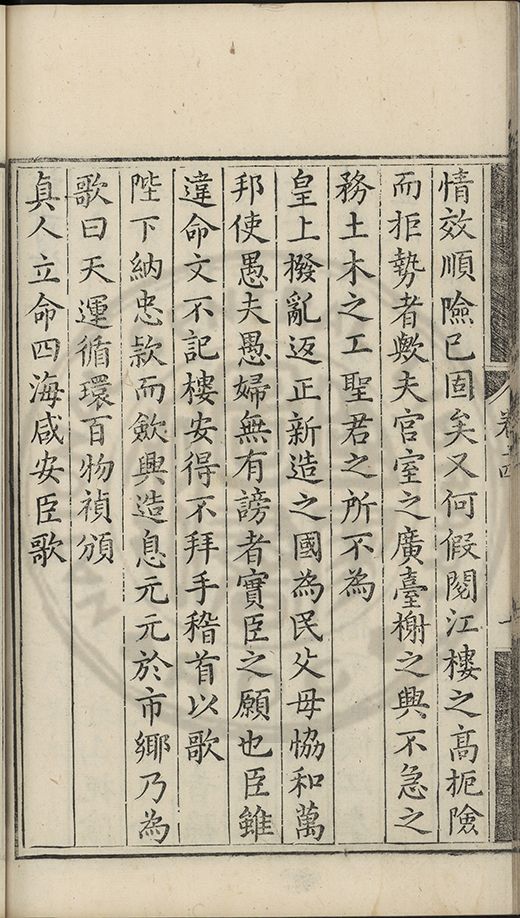 情效順險已固矣又何假閱江樓之高扼險
而拒勢者歟夫宫室之廣臺榭之興不急之
務土木之工聖君之所不為
皇上撥亂返正新造之國為民父母恊和萬
邦使愚夫愚婦無有謗者實臣之願也臣雖
違命文不記樓安得不拜手稽首以歌
陛下納忠款而歛興造息元元於市鄉乃為
歌曰天運循環百物禎頒
真人立命四海咸安臣歌